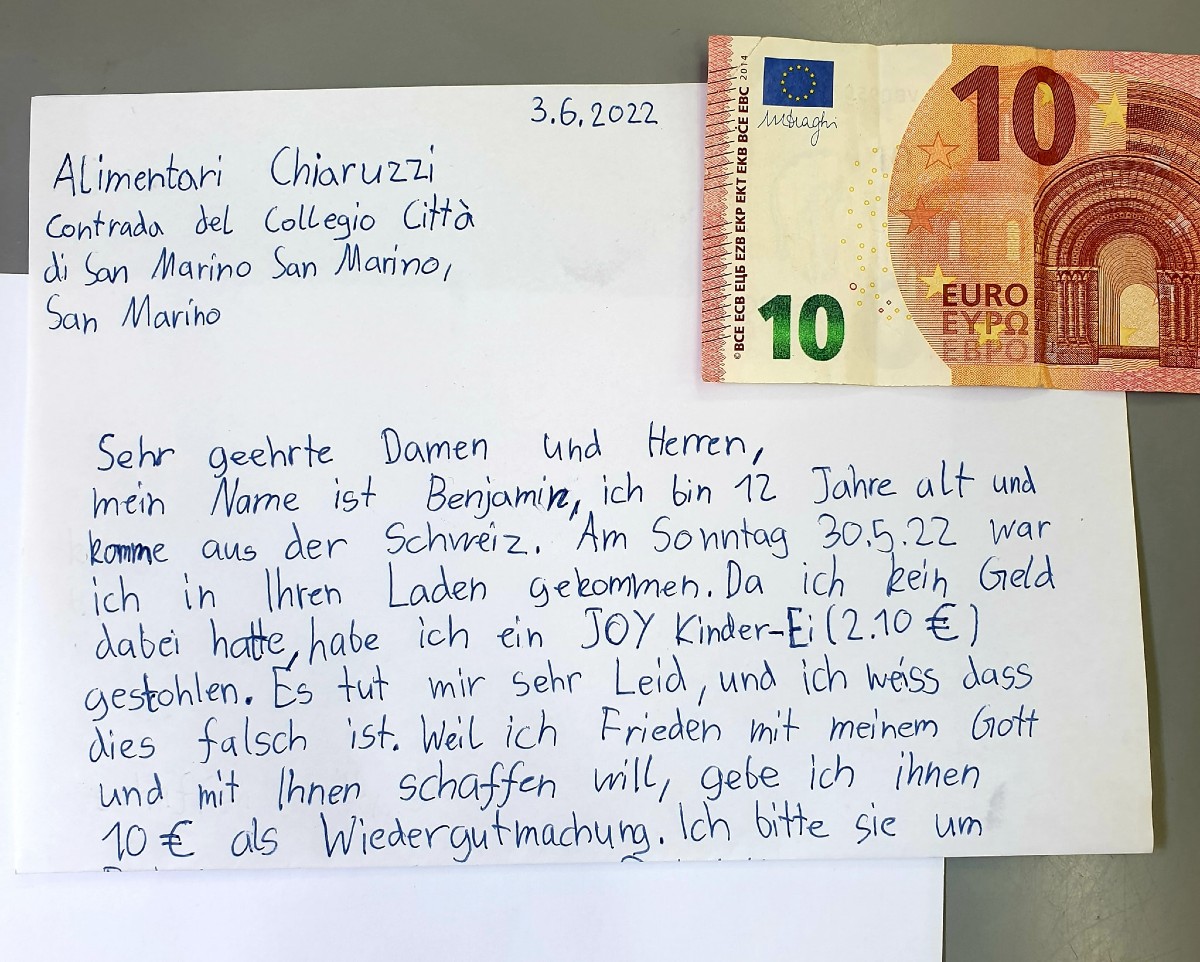 3.6.2022
Alimentari Chiaruzzi
Contrada del Collegio Città
di San Marino San Marino,
San Marino
Sehr geehrte Damen und Herren,
mein Name ist Benjamin, ich bin 12 Jahre alt und
komme aus der Schweiz. Am Sonntag 30.5.22 war
ich in Ihren Laden gekommen. Da ich kein Geld
dabei hatte, habe ich ein JOY Kinder-Ei (2.10 €)
gestohlen. Es tut mir sehr Leid, und ich weiss dass
dies falsch ist. Weil ich Frieden mit meinem Gott
und mit Ihnen schaffen will, gebe ich ihnen
10 € als Wiedergutmachung. Ich bitte sie um
10
MDraghi
©BCE ECB ЕЦБ EZB EKP EKT EKB BĊE EBC 2014
10
EURO
ΕΥΡΩ
ЕВРО